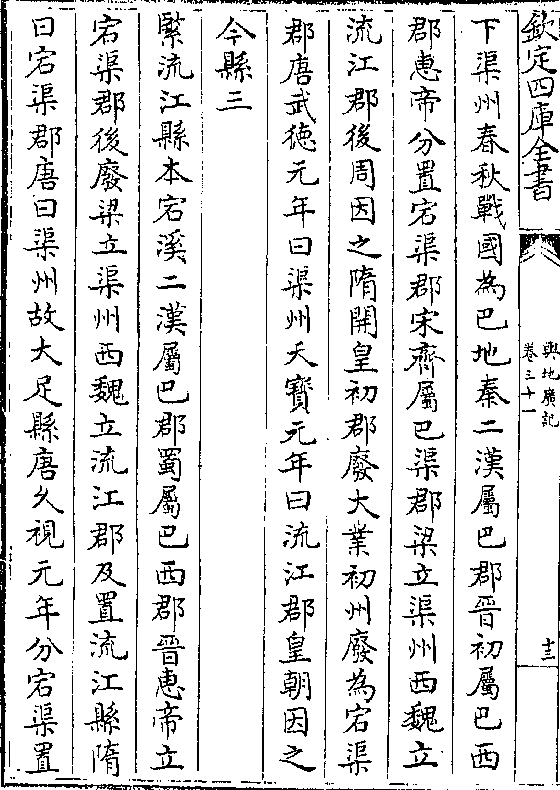 欽定四庫全書
輿地廣記
卷三十一
十三
下渠州春秋戰國為巴地秦二漢屬巴郡晉初屬巴西
郡惠帝分置宕渠郡宋齊屬巴渠郡梁立渠州西魏立
流江郡後周因之隋開皇初郡廢大業初州廢為宕渠
郡唐武徳元年曰渠州天寶元年曰流江郡皇朝因之
今縣三
緊流江縣本宕溪二漢屬巴郡蜀屬巴西郡晉惠帝立
宕渠郡後廢梁立渠州西魏立流江郡及置流江縣隋
曰宕渠郡唐曰渠州故大足縣唐久視元年分宕渠置